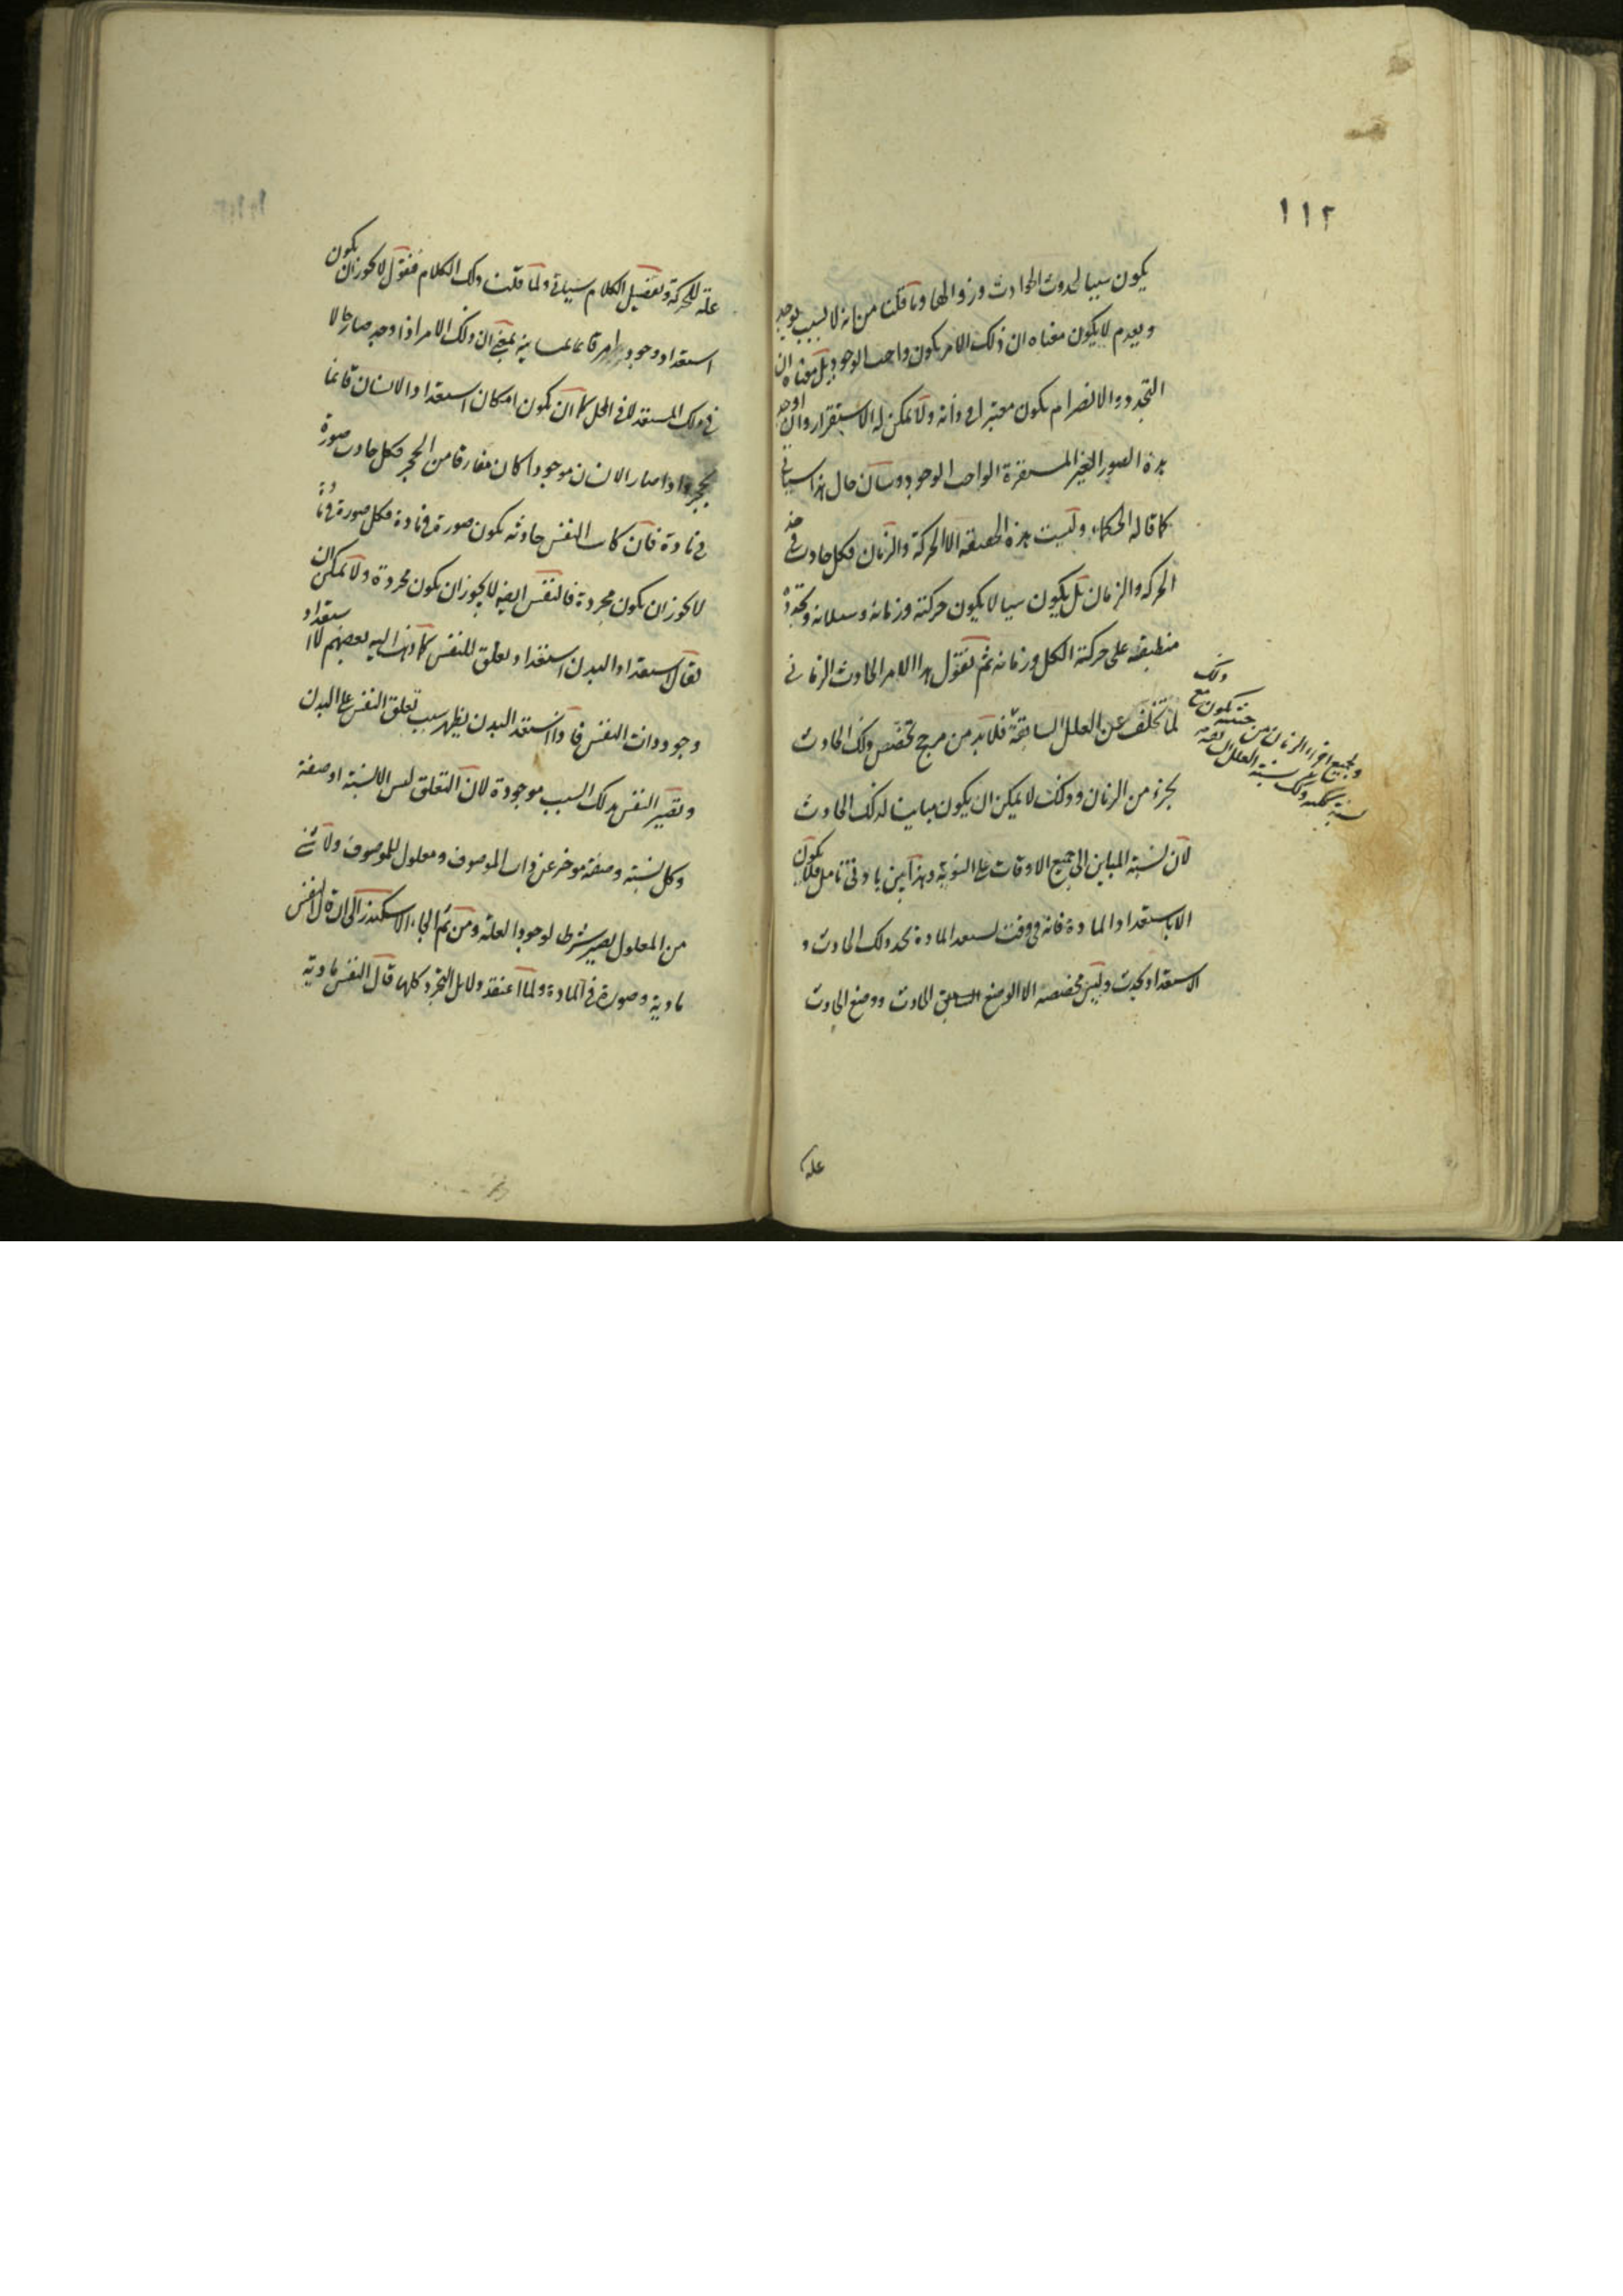 ١١٢
يكون سببا لحدوث الحوادث وزوالها وما قلنا من انه لا لسبب يوجد
ويعدم لا يكون معناه ان ذلك الامر يكون واجب الوجود بل معناه ان
التجدد والانصرام يكون معتبرا فى ذاته ولا يمكن له الاستقرار وان اوجد
هذه الصور الغير المستقرة الواجب الوجود وبيان حال هذا سياتى
كما قاله الحكماء وليست هذه الحقيقة الا الحركة والزمان فكل حادث فى
الحركة والزمان بل يكون سيالا يكون حركته وزمانه وسيلانه وتجدده
منطبقة على حركة الكل وزمانه ثم نقول هذا الامر الحادث الزمانى
لما تخلف عن العلل السابقة فلابد من مرجح تخصص ذلك الحادث
بجزء من الزمان وذلك لا يمكن ان يكون مباينا لذلك الحادث
لان نسبة المباين الى جميع الاوقات على السوية وهذا بين بادنى تامل فلا يكون
الا باستعداد المادة فانه فى وقت تستعد المادة يحدث ذلك الحادث و
الاستعداد يحدث وليس مخصصه الا الوضع السابق الحادث ووضع الحادث
ذلك
ولجميع اجزاء الزمان من حيث يكون مع
نسبة ذلك نسبة العلل
علة
علة للحركة وتفصيل الكلام سياتى ولما قلت ذلك الكلام فنقول لا يجوز ان يكون
استعداد وجود امر قائما بمباينه بمعنى ان ذلك الامر اذا وجد صار حالا
فى ذلك المستعد لا فى المحل كما ان يكون امكان استعداد الانسان قائما
بحجر واذا صار الانسان موجودا كان مفارقا من الحجر فكل حادث صورة
فى مادة فان كانت النفس حادثة يكون صورة فى مادة فكل صورة فى مادة
لا يجوز ان يكون مجردة فالنفس ايضا لا يجوز ان يكون مجردة ولا يمكن ان
يقال استعداد البدن استعداد تعلق للنفس كما ذهب اليه بعضهم لا استعداد
وجود ذات النفس فاذا استعد البدن يظهر سبب تعلق النفس على البدن
وتصير النفس بذلك السبب موجودة لان التعلق ليس الا نسبة او صفة
وكل نسبة وصفة موخر عن ذات الموصوف ومعلول للموصوف ولا شئ
من المعلول يصير شرطا لوجود العلة ومن ثم التجاء الاسكندر الى ان قال النفس
مادية وصورة فى المادة ولما اعتقد دلائل التجرد كلها قال النفس مادية